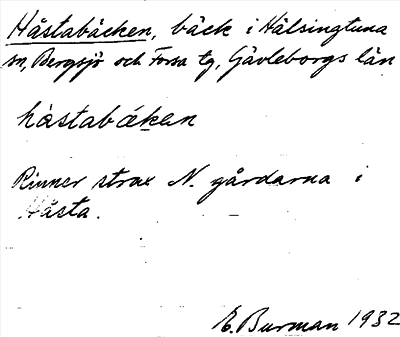 Håstabäcken, bäck i Hälsingtuna
sn, Bergsjö och Forsa tg, Gävleborgs län
håstabäken
Rinner strax N. gårdarna i
Håsta.
E. Burman 1932